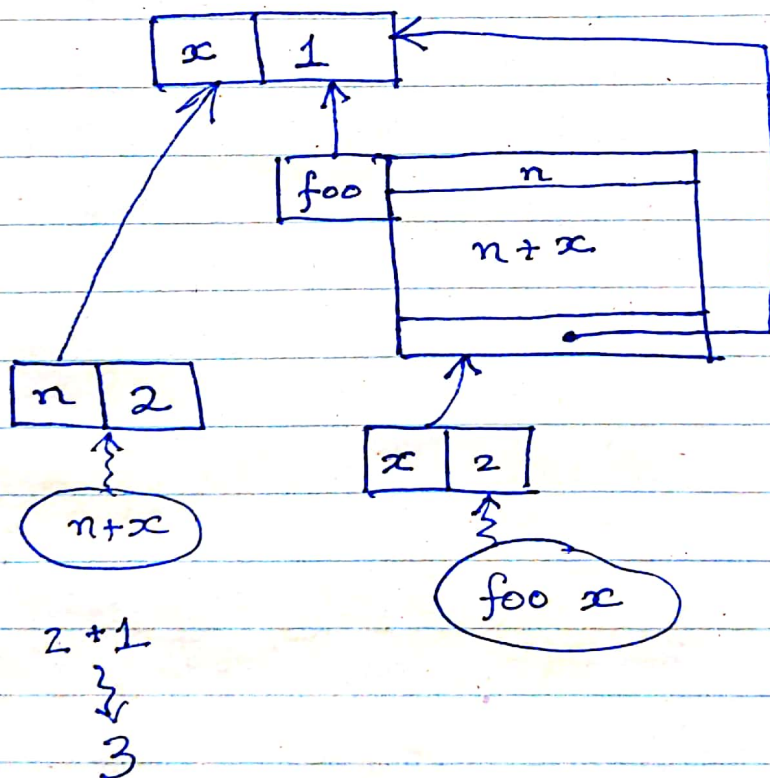 x 1
foo n
n + x
n 2
x 2
n+x
foo x
2 + 1
3